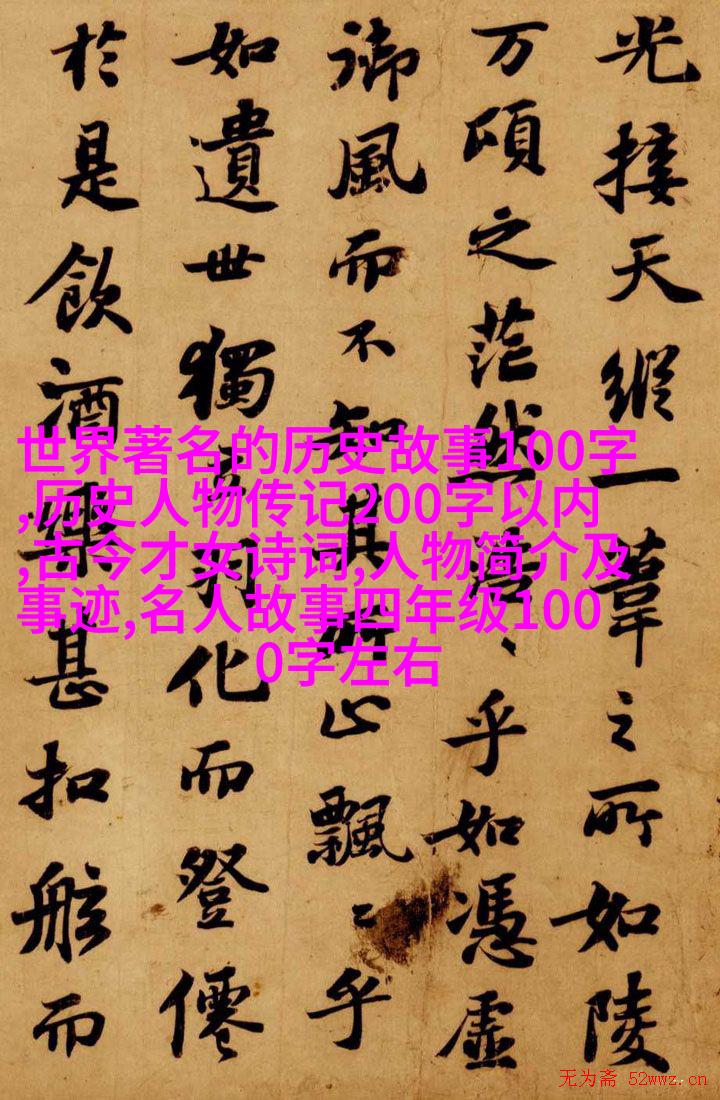 光接天縱一葦之所如陵
万頃之茫然浩〻乎如憑虛
御風而不知其所止飄〻乎
如遺世獨立羽化而登僊
於是飲酒樂甚扣舷而
世界著名的历史故事100字
,历史人物传记200字以内
,古今才女诗词,人物简介及
事迹,名人故事四年级100
0字左右
无为斋 52wwz.cn